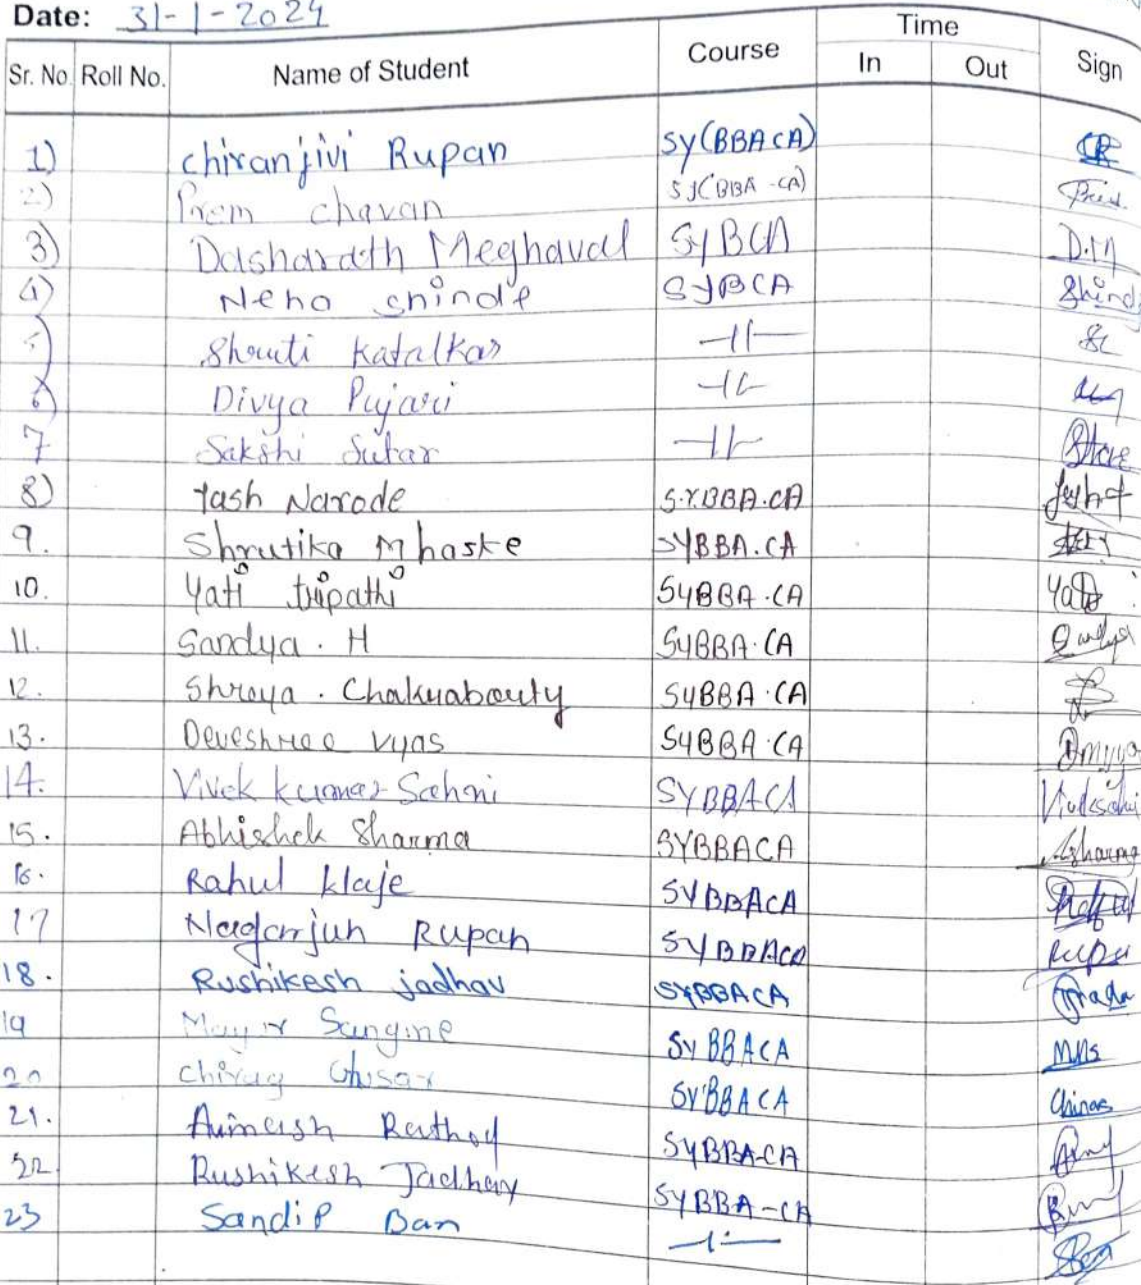 Date: 31-1-2024
Sr. No. Roll No. Name of Student Course Time In Out Sign
1) Chiranjivi Rupan SY(BBACA)
2) Prem chavan SY(BBA-CA)
3) Dasharath Meghaval SYBCA D.M
4) Neha shinde SYBCA Shind
5) Shruti Katalkar -11-
6) Divya Pujari -11-
7 Sakshi Sutar -11-
8) Yash Narode S.Y.BBA.CA
9. Shrutika Mhaske SYBBA.CA
10. Yati tripathi SYBBA.CA
11. Sandya. H SYBBA.CA
12. Shreya. Chakraborty SYBBA.CA
13. Deveshree Vyas SYBBA.CA
14. Vivek kumar Sahni SYBBACA
15. Abhishek Sharma SYBBACA Asharma
16. Rahul klaje SYBBACA
17 Nagarjun Rupan SYBBACA
18. Rushikesh jadhav SYBBACA
19 Mayur Sangine SYBBACA
20 Chirag Gusar SYBBACA
21. Avinash Rathod SYBBA-CA
22 Rushikesh Jadhav SYBBA-CA
23 Sandip Ban